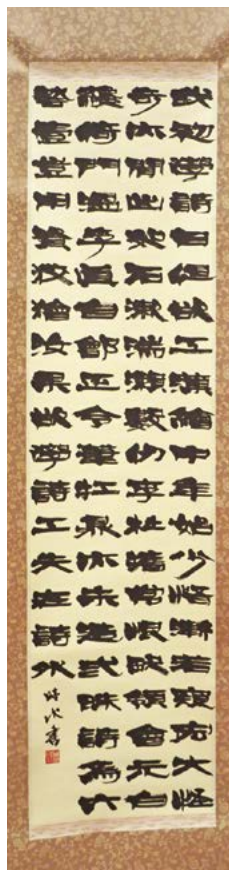 我初學詩日但欲工藻繪中年始少悟漸若窺宏大怪
奇亦間出如石漱湍瀨數仞李杜牆常恨欠領會元白
纔倚門溫李真自鄶正令筆扛鼎亦未造弎昧詩為六
藝壹豈用資狡獪汝果欲學詩工夫在詩外
書